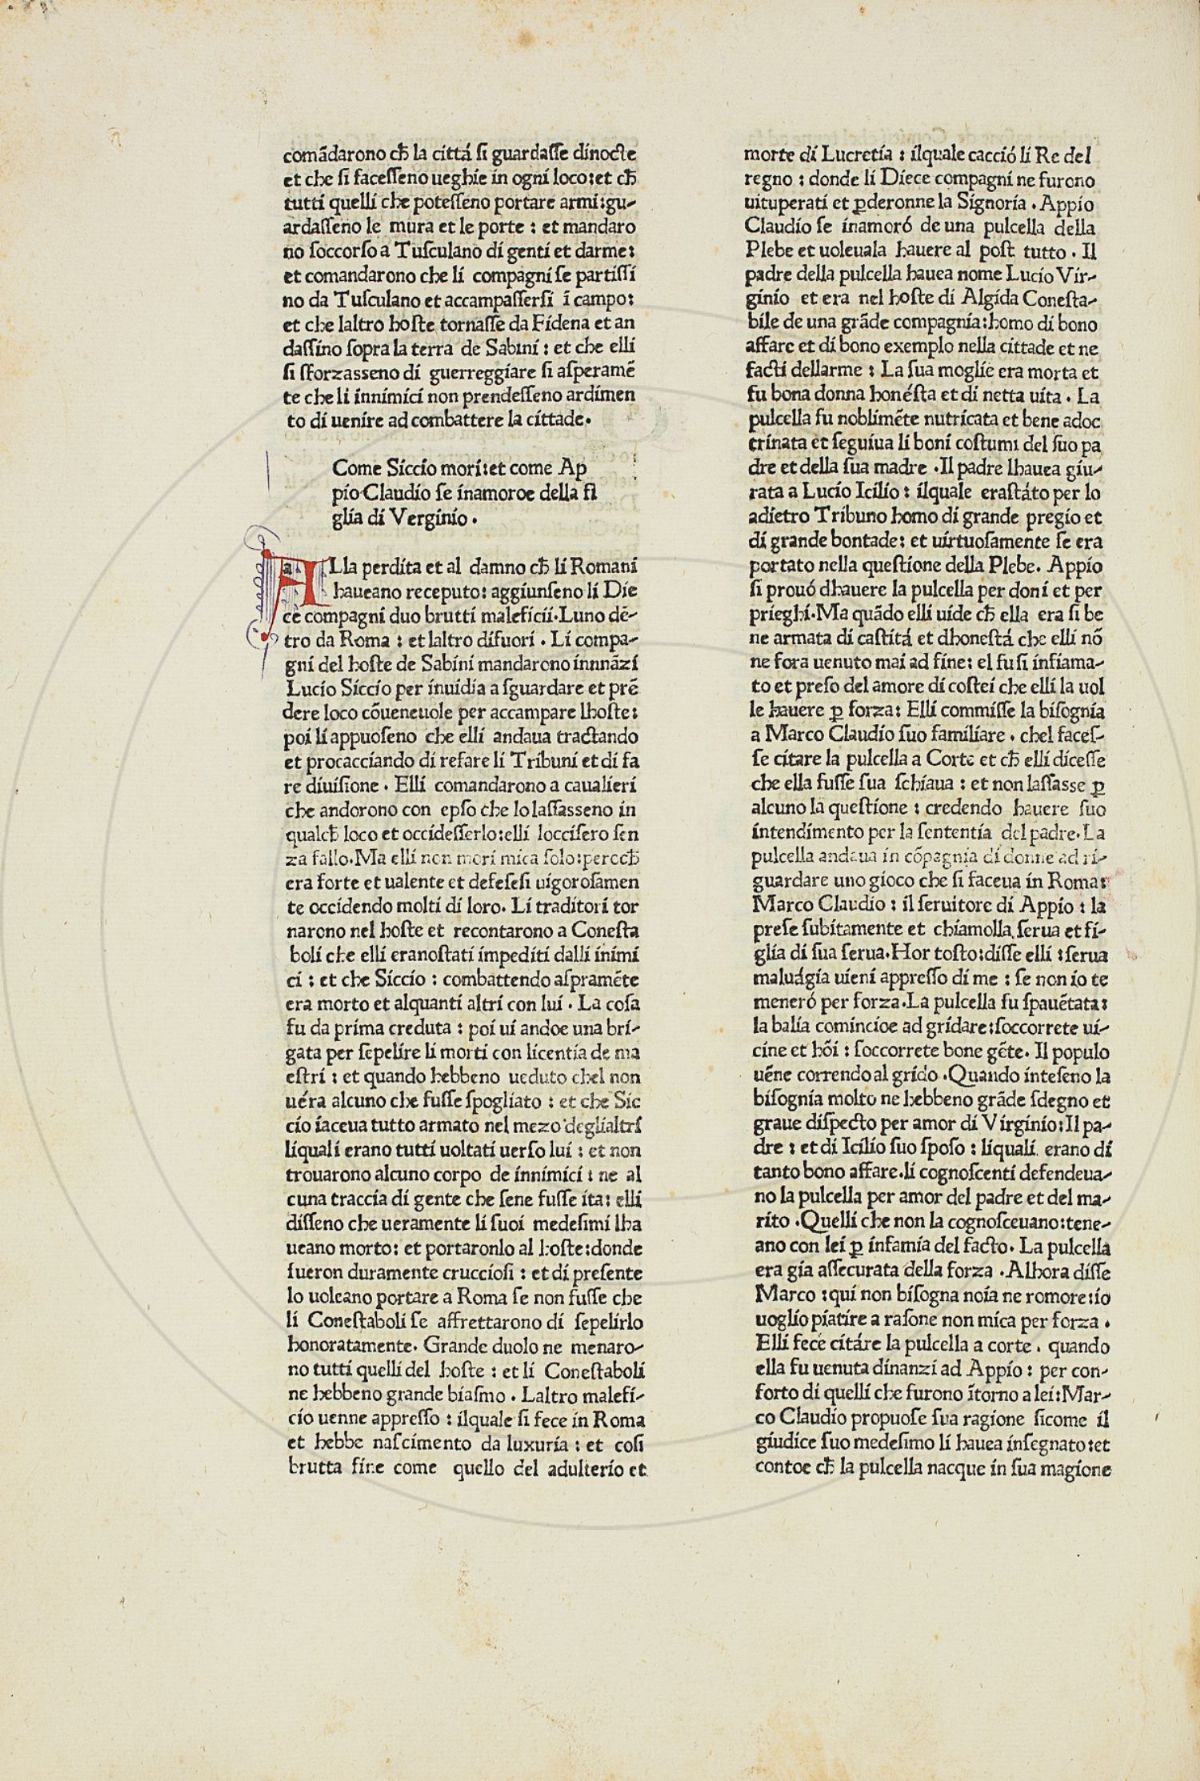 comādarono cħ la cittá si guardasse dinocte
et che si facesseno ueghie in ogni loco:et cħ
tutti quelli che potesseno portare armi:gu-
ardasseno le mura et le porte : et mandaro
no soccorso a Tusculano di genti et darme:
et comandarono che li compagni se partissi
no da Tusculano et accampassersi ī campo:
et che laltro hoste tornasse da Fidena et an
dassino sopra la terra de Sabini : et che elli
si sforzasseno di guerreggiare si asperamē
te che li innimici non prendesseno ardimen
to di uenire ad combattere la cittade.
Come Siccio mori:et come Ap
pio Claudio se inamoroe della fi
glia di Verginio .
ALla perdita et al damno cħ li Romani
haueano receputo: aggiunseno li Die
ce compagni duo brutti maleficii.Luno dē-
tro da Roma : et laltro difuori . Li compa-
gni del hoste de Sabini mandarono innnāzi
Lucio Siccio per inuidia a sguardare et prē
dere loco cōueneuole per accampare lhoste:
poi li appuoseno che elli andaua tractando
et procacciando di refare li Tribuni et di fa
re diuisione . Elli comandarono a caualieri
che andorono con epso che lo lassasseno in
qualcħ loco et occidesserlo:elli loccisero sen
za fallo.Ma elli non mori mica solo:percħ
era forte et ualente et defesesi uigorosamen
te occidendo molti di loro. Li traditori tor
narono nel hoste et recontarono a Conesta
boli che elli eranostati impediti dalli inimi
ci : et che Siccio : combattendo aspramēte
era morto et alquanti altri con lui . La cosa
fu da prima creduta : poi ui andoe una bri-
gata per sepelire li morti con licentia de ma
estri : et quando hebbeno ueduto chel non
uéra alcuno che fusse spogliato : et che Sic
cio iaceua tutto armato nel mezo deglialtri
liquali erano tutti uoltati uerso lui : et non
trouarono alcuno corpo de innimici : ne al
cuna traccia di gente che sene fusse ita: elli
disseno che ueramente li suoi medesimi lha
ueano morto: et portaronlo al hoste:donde
fueron duramente crucciosi : et di presente
lo uoleano portare a Roma se non fusse che
li Conestaboli se affrettarono di sepelirlo
honoratamente. Grande duolo ne menaro-
no tutti quelli del hoste : et li Conestaboli
ne hebbeno grande biasmo . Laltro malefi-
cio uenne appresso : ilquale si fece in Roma
et hebbe nascimento da luxuria : et cosi
brutta fine come quello del adulterio et
morte di Lucretia : ilquale cacció li Re del
regno : donde li Diece compagni ne furono
uituperati et ꝑderonne la Signoria . Appio
Claudio se inamoró de una pulcella della
Plebe et uoleuala hauere al post tutto . Il
padre della pulcella hauea nome Lucio Vir-
ginio et era nel hoste di Algida Conesta-
bile de una grāde compagnia:homo di bono
affare et di bono exemplo nella cittade et ne
facti dellarme : La sua moglie era morta et
fu bona donna honésta et di netta uita . La
pulcella fu noblimēte nutricata et bene adoc
trinata et seguiua li boni costumi del suo pa
dre et della sua madre .Il padre lhauea giu-
rata a Lucio Icilio : ilquale erastáto per lo
adietro Tribuno homo di grande pregio et
di grande bontade: et uirtuosamente se era
portato nella questione della Plebe. Appio
si prouó dhauere la pulcella per doni et per
prieghi.Ma quādo elli uide cħ ella era si be
ne armata di castitá et dhonestá che elli nō
ne fora uenuto mai ad fine: el fusi infiama-
to et preso del amore di costei che elli la uol
le hauere ꝑ forza: Elli commisse la bisognia
a Marco Claudio suo familiare . chel faces-
se citare la pulcella a Corte et cħ elli dicesse
che ella fusse sua schiaua : et non lassasse ꝑ
alcuno la questione : credendo hauere suo
intendimento per la sententia del padre. La
pulcella andaua in cōpagnia di donne ad ri-
guardare uno gioco che si faceua in Roma:
Marco Claudio : il seruitore di Appio : la
prese subitamente et chiamolla serua et fi-
glia di sua serua.Hor tosto:disse elli :serua
maluágia uieni appresso di me : se non io te
meneró per forza.La pulcella fu spauētata:
la balia comincioe ad gridare:soccorrete ui-
cine et hōi : soccorrete bone gēte. Il populo
uēne correndo al grido .Quando inteseno la
bisognia molto ne hebbeno grāde sdegno et
graue dispecto per amor di Virginio:Il pa-
dre : et di Icilio suo sposo : liquali erano di
tanto bono affare.li cognoscenti defendeua-
no la pulcella per amor del padre et del ma-
rito .Quelli che non la cognosceuano:tene-
ano con lei ꝑ infamia del facto. La pulcella
era gia assecurata della forza .Alhora disse
Marco :qui non bisogna noia ne romore:io
uoglio piatire a rasone non mica per forza .
Elli fece citáre la pulcella a corte . quando
ella fu uenuta dinanzi ad Appio : per con-
forto di quelli che furono ītorno a lei:Mar-
co Claudio propuose sua ragione sicome il
giudice suo medesimo li hauea insegnato:et
contoe cħ la pulcella nacque in sua magione